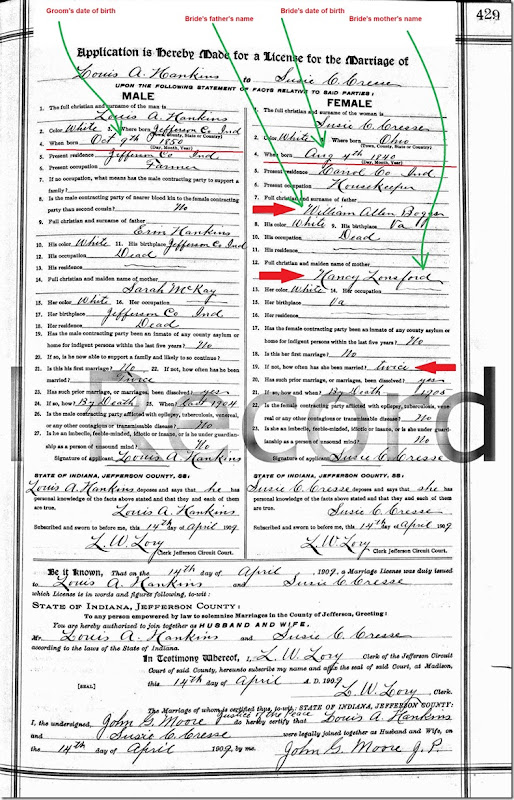 Groom's date of birth
Bride's father's name
Bride's date of birth
Bride's mother's name
429
Application is Hereby Made for a License for the Marriage of
Louis A. Hankins to Susie C. Cresse
UPON THE FOLLOWING STATEMENT OF FACTS RELATIVE TO SAID PARTIES:
MALE
1. The full christian and surname of the man is
Louis A. Hankins
2. Color White 3. Where born Jefferson Co Ind
(Town, County, State or Country)
4. When born Oct 9th 1850
(Day, Month, Year)
5. Present residence Jefferson Co Ind
6. Present occupation Farmer
7. If no occupation, what means has the male contracting party to support a
family?
8. Is the male contracting party of nearer blood kin to the female contracting
party than second cousin? No
9. Full christian and surname of father
Esm Hankins
10. His color White 11. His birthplace Jefferson Co Ind
12. His occupation Dead
13. His residence
14. Full christian and maiden name of mother
Sarah McKay
15. Her color White 16. Her occupation
17. Her birthplace Jefferson Co Ind
18. Her residence Dead
19. Has the male contracting party been an inmate of any county asylum or
home for indigent persons within the last five years? No
20. If so, is he now able to support a family and likely to so continue?
21. Is this his first marriage? No 22. If not, how often has he been
married? Twice
23. Has such prior marriage, or marriages, been dissolved? yes
24. If so, how? By Death 25. When? Last 1904
26. Is the male contracting party afflicted with epilepsy, tuberculosis, venereal,
or any other contagious or transmissible disease? No
27. Is he an imbecile, feeble-minded, idiotic or insane, or is he under guardian-
ship as a person of unsound mind? No
Signature of applicant Louis A. Hankins
STATE OF INDIANA, JEFFERSON COUNTY, SS:
Louis A. Hankins deposes and says that he has
personal knowledge of the facts above stated and that they and each of them
are true. Louis A. Hankins
Subscribed and sworn to before me, this 14th day of April 1909
L. W. Lory
Clerk Jefferson Circuit Court.
FEMALE
1. The full christian and surname of the woman is
Susie C. Cresse
2. Color White 3. Where born Ohio
(Town, County, State or Country)
4. When born Aug 4th 1840
(Day, Month, Year)
5. Present residence Carrol Co Ind
6. Present occupation Housekeeper
7. Full christian and surname of father
William Allen Boggs
8. His color White 9. His birthplace Va
10. His occupation Dead
11. His residence
12. Full christian and maiden name of mother
Nancy Lonsford
13. Her color White 14. Her occupation
15. Her birthplace Va
16. Her residence
17. Has the female contracting party been an inmate of any county asylum or
home for indigent persons within the last five years? No
18. Is this her first marriage? No
19. If not, how often has she been married? twice
20. Has such prior marriage, or marriages, been dissolved? yes
21. If so, how and when? By Death 1905
22. Is the female contracting party afflicted with epilepsy, tuberculosis, venereal
or any other contagious or transmissible disease? No
23. Is she an imbecile, feeble-minded, idiotic or insane, or is she under guardi-
anship as a person of unsound mind? No
Signature of applicant Susie C. Cresse
STATE OF INDIANA, JEFFERSON COUNTY, SS:
Susie C. Cresse deposes and says that she has
personal knowledge of the facts above stated and that they and each of them
are true. Susie C. Cresse
Subscribed and sworn to before me, this 14th day of April 1909
L. W. Lory
Clerk Jefferson Circuit Court.
Record
Be it Known, That on the 14th day of April, 1909, a Marriage License was duly issued
to Louis A. Hankins and Susie C. Cresse
which License is in words and figures following, to-wit:
STATE OF INDIANA, JEFFERSON COUNTY:
To any person empowered by law to solemnize Marriages in the County of Jefferson, Greeting:
You are hereby authorized to join together as HUSBAND AND WIFE,
Mr. Louis A. Hankins and Susie C. Cresse
according to the laws of the State of Indiana.
In Testimony Whereof, I, L. W. Lory Clerk of the Jefferson Circuit
Court of said County, hereunto subscribe my name and affix the seal of said Court, at Madison,
[SEAL] this 14th day of April A. D. 1909
L. W. Lory Clerk.
The Marriage of whom is certified thus, to-wit: STATE OF INDIANA, JEFFERSON COUNTY:
I, the undersigned, John G. Moore Justice of the Peace do hereby certify that Louis A. Hankins
and Susie C. Cresse were legally joined together as Husband and Wife, on
the 14th day of April 1909, by me. John G. Moore J. P.